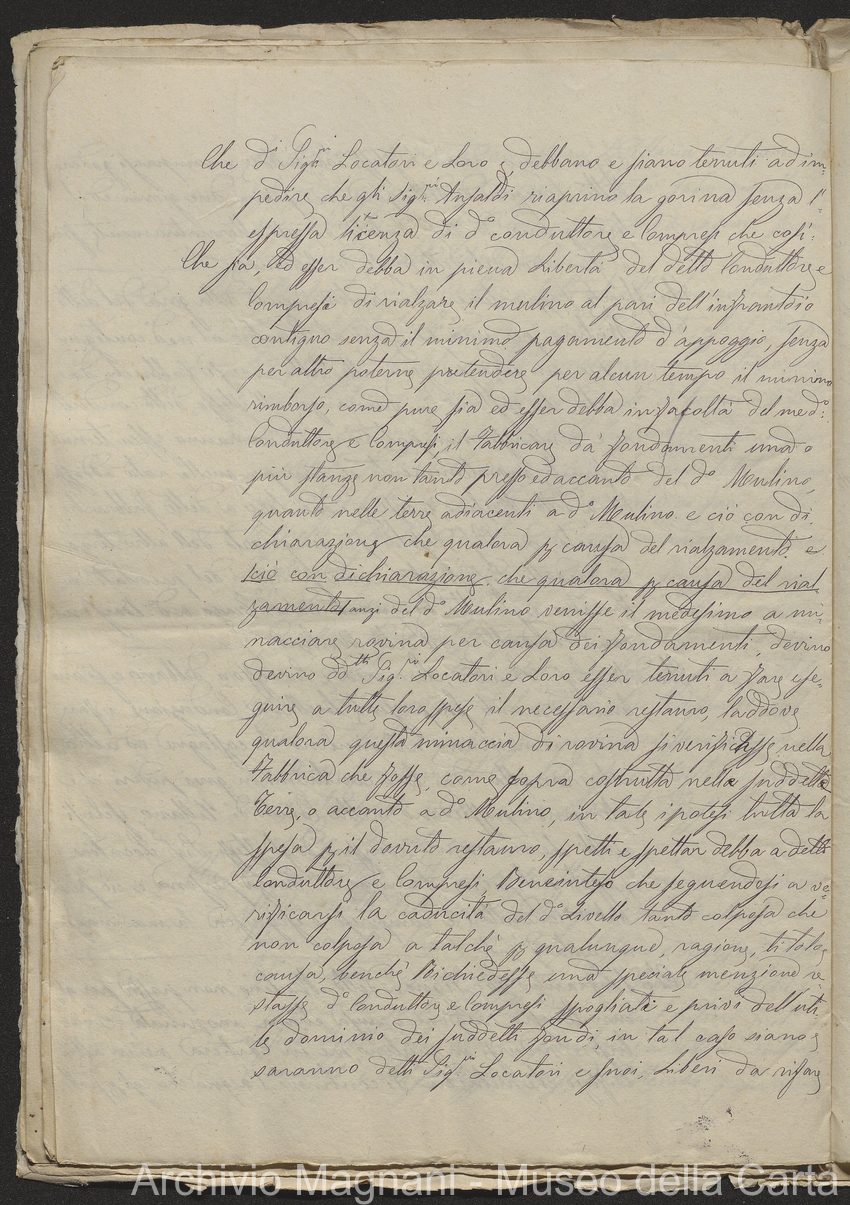 Che d.i Sig.ri Locatori e Loro e, debbano e siano tenuti ad im-
pedire, che gli Sig.ri Ansaldi riaprino la gorina senza l'
espressa licenza di d.o conduttore e Compresi che così:
Che sia, ed esser debba in piena Libertà del detto Conduttore e
Compresi di rialzare il mulino al pari dell'infrantoio
contiguo senza il minimo pagamento d'appoggio, senza
per altro poterne pretendere per alcun tempo il minimo
rimborso, come pure sia ed esser debba in facoltà del med.o:
Conduttore e Compresi, il Fabbricare da fondamenti una o
più stanze non tanto presso ed accanto del d.o Mulino,
quanto nelle terre adiacenti a d.o Mulino e ciò con di
chiarazione che qualora p causa del rialzamento e
ciò con dichiarazione che qualora p causa del rial
zamento anzi del d.o Mulino venisse il medesimo a mi-
nacciare rovina per causa dei fondamenti, devino
devino dd.tti Sig.ri Locatori e Loro esser tenuti a fare ese-
guire a tutte loro spese il necessario restauro, laddove
qualora questa minaccia di rovina si verificasse nella
Fabbrica che fosse, come sopra costrutta nelle suddette
Terre, o accanto a d.o Mulino, in tale ipotesi tutta la
spesa p il dovuto restauro, spetti e spettar debba a detti
Conduttore e Compresi Beneinteso che seguendosi a ve-
rificarsi la caducità del d.o Livello tanto colposa che
non colposa a talchè p qualunque, ragione, titolo,
causa, benchè Richiedesse una speciale menzione re
stasse d.o Conduttore e Compresi spogliati e privi dell'uti-
le dominio dei suddetti fondi, in tal caso siano e
saranno detti Sig.ri Locatori e suoi, Liberi da rifare
Archivio Magnani - Museo della Carta